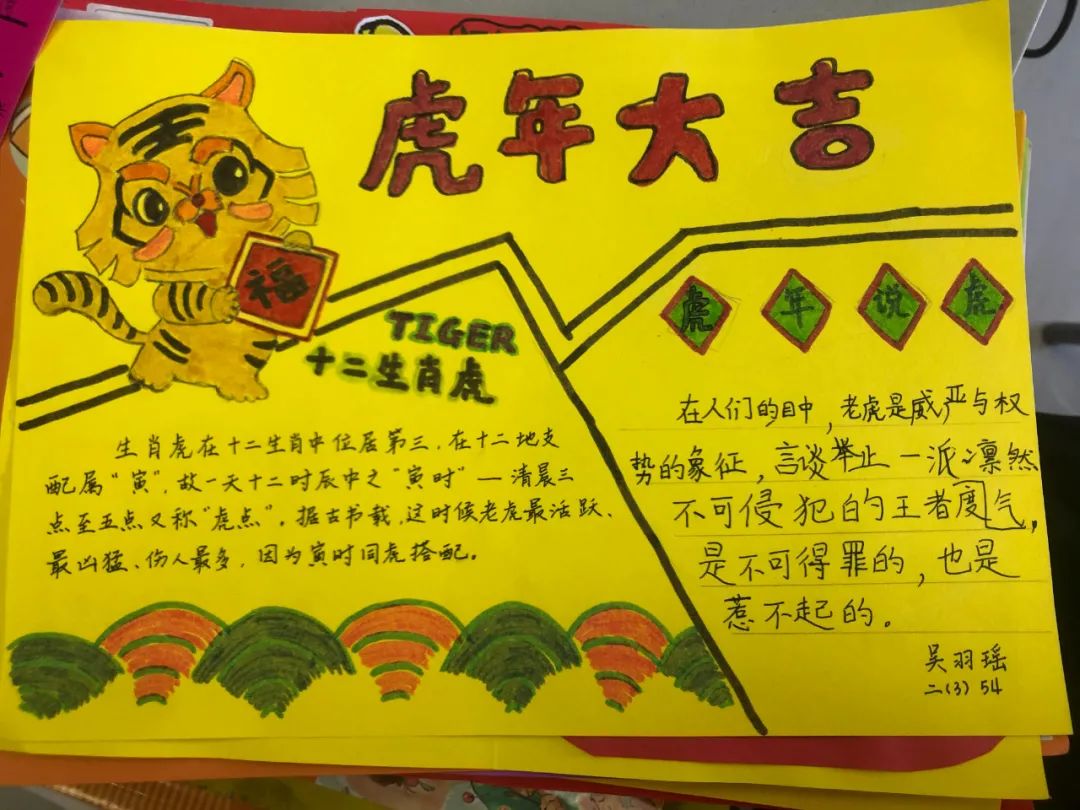 虎年大吉
王
福
TIGER
十二生肖虎
生肖虎在十二生肖中位居第三，在十二地支
配属“寅”，故一天十二时辰中之“寅时”—清晨三
点至五点又称“虎点”。据古书载，这时候老虎最活跃、
最凶猛、伤人最多，因为寅时同虎搭配。
虎年说虎
在人们的目中，老虎是威严与权
势的象征，言谈举止一派凛然
不可侵犯的王者度气，
是不可得罪的，也是
惹不起的。
吴羽瑶
二(3) 54